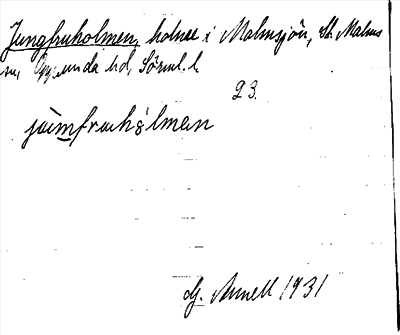 Jungfruholmen, holme i Malmsjön, St. Malms
sn, Oppunda hd, Sörml. l.
23.
G. Arnell 1931